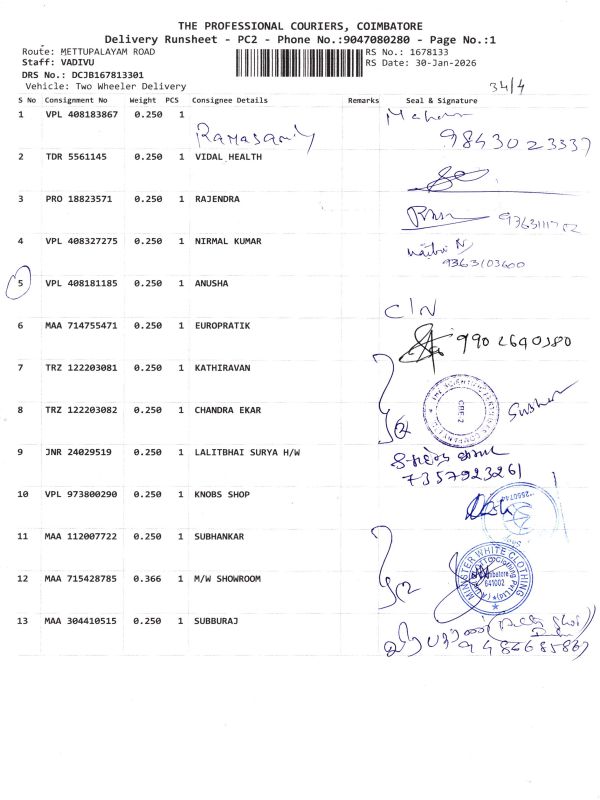 THE PROFESSIONAL COURIERS, COIMBATORE
Delivery Runsheet - PC2 - Phone No.:9047080280 - Page No.:1
Route: METTUPALAYAM ROAD RS No.: 1678133
Staff: VADIVU RS Date: 30-Jan-2026
DRS No.: DCJB167813301
Vehicle: Two Wheeler Delivery 34/4
S No Consignment No Weight PCS Consignee Details Remarks Seal & Signature
1 VPL 408183867 0.250 1 Ramasamy 9843023337
2 TDR 5561145 0.250 1 VIDAL HEALTH
3 PRO 18823571 0.250 1 RAJENDRA
4 VPL 408327275 0.250 1 NIRMAL KUMAR
9363103600
5 VPL 408181185 0.250 1 ANUSHA C/N
6 MAA 714755471 0.250 1 EUROPRATIK 9902640380
7 TRZ 122203081 0.250 1 KATHIRAVAN
8 TRZ 122203082 0.250 1 CHANDRA EKAR CBE-2
9 JNR 24029519 0.250 1 LALITBHAI SURYA H/W
7357923261
10 VPL 973800290 0.250 1 KNOBS SHOP
11 MAA 112007722 0.250 1 SUBHANKAR
12 MAA 715428785 0.366 1 M/W SHOWROOM MINISTER WHITE CLOTHING
Coimbatore
641002
13 MAA 304410515 0.250 1 SUBBURAJ